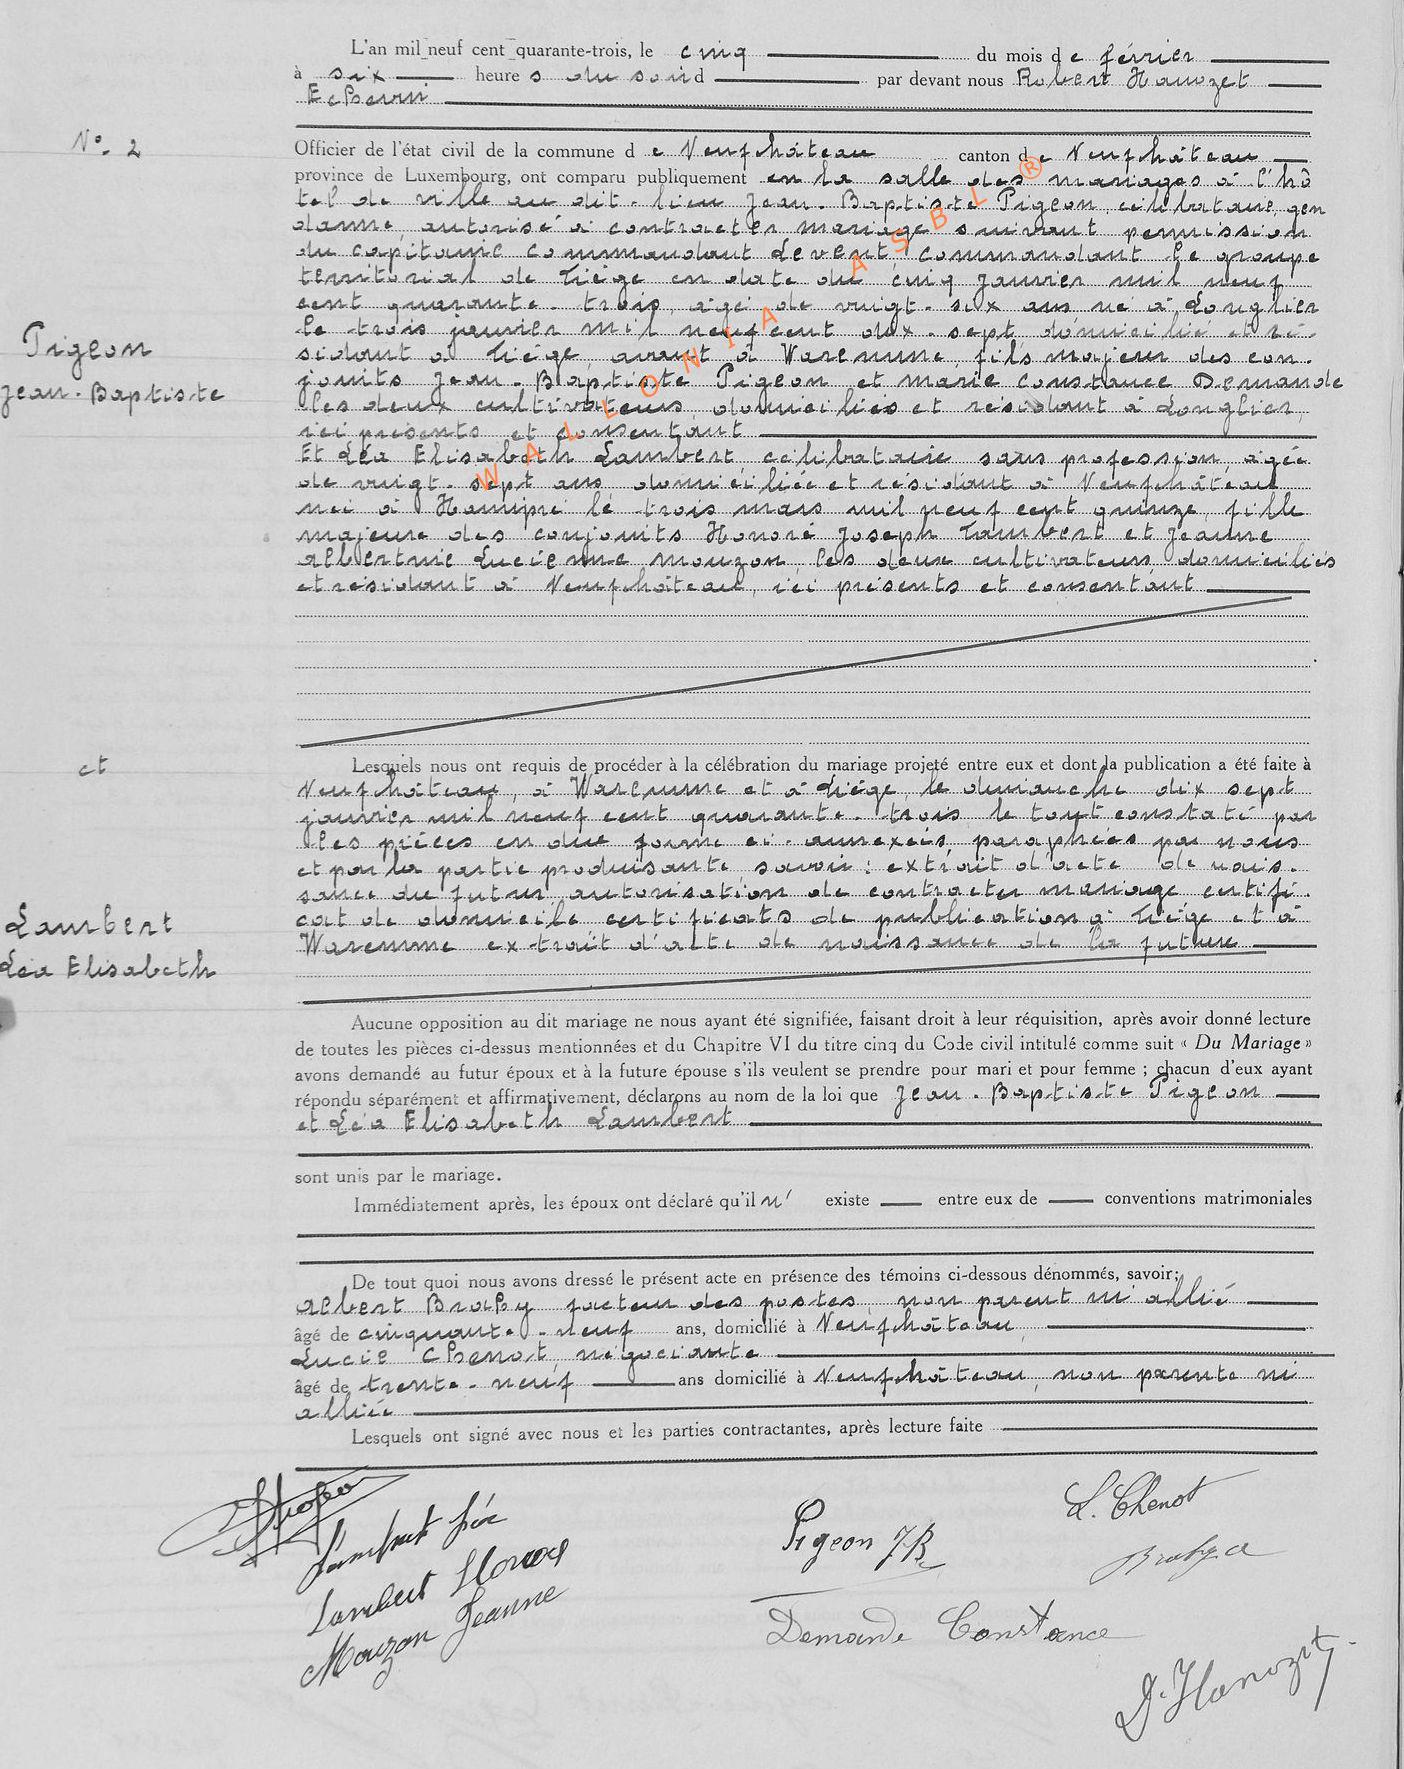 L'an mil neuf cent quarante-trois, le cinq du mois de février
à six heures du soir d par devant nous Robert Hanozet
Echevin
N° 2
Officier de l'état civil de la commune de Neufchâteau canton de Neufchâteau
province de Luxembourg, ont comparu publiquement en la salle des mariages à l'hô
tel de ville au dit-lieu Jean-Baptiste Pigeon, célibataire, gen
darme, autorisé à contracter mariage suivant permission
du capitaine commandant Levent commandant le groupe
territorial de Liège en date du cinq janvier mil neuf
cent quarante-trois, âgé de vingt-six ans né à Longlier
le trois janvier mil neuf cent dix-sept, domicilié et ré-
sidant à Liège avant à Waremme, fils majeur des con-
joints Jean-Baptiste Pigeon et Marie Constance Demande
les deux cultivateurs, domiciliés et résidant à Longlier,
ici présents et consentant
Pigeon
Jean-Baptiste
Et Léa Elisabeth Lambert, célibataire sans profession, âgée
de vingt-sept ans domiciliée et résidant à Neufchâteau
née à Hamipré le trois mars mil neuf cent quinze, fille
majeure des conjoints Honoré Joseph Lambert et Jeanne
Albertine Lucienne Mouzon, les deux cultivateurs, domiciliés
et résidant à Neufchâteau, ici présents et consentant
et
Lesquels nous ont requis de procéder à la célébration du mariage projeté entre eux et dont la publication a été faite à
Neufchâteau, à Waremme et à Liège, le dimanche dix sept
janvier mil neuf cent quarante-trois le tout constaté par
les pièces en due forme ci-annexées, paraphées par nous
et par la partie produisante savoir: extrait d'acte de nais-
sance du futur, autorisation de contracter mariage certifi-
cat de domicile certificats de publication à Liège et à
Waremme extrait d'acte de naissance de la future
Lambert
Léa Elisabeth
Aucune opposition au dit mariage ne nous ayant été signifiée, faisant droit à leur réquisition, après avoir donné lecture
de toutes les pièces ci-dessus mentionnées et du Chapitre VI du titre cinq du Code civil intitulé comme suit « Du Mariage »
avons demandé au futur époux et à la future épouse s'ils veulent se prendre pour mari et pour femme ; chacun d'eux ayant
répondu séparément et affirmativement, déclarons au nom de la loi que Jean-Baptiste Pigeon
et Léa Elisabeth Lambert
sont unis par le mariage.
Immédiatement après, les époux ont déclaré qu'il n' existe entre eux de conventions matrimoniales
De tout quoi nous avons dressé le présent acte en présence des témoins ci-dessous dénommés, savoir:
Albert Brahy facteur des postes, non parent ni allié
âgé de cinquante-neuf ans, domicilié à Neufchâteau,
Lucie Chenot, négociante
âgé de trente-neuf ans domicilié à Neufchâteau, non parente ni
alliée
Lesquels ont signé avec nous et les parties contractantes, après lecture faite
Lambert Léa
L. Chenot
Pigeon J.B.
Brahy A
Lambert Honoré
Mouzon Jeanne
Demande Constance
Dr Hanozet
WALLONIA ASBL ®